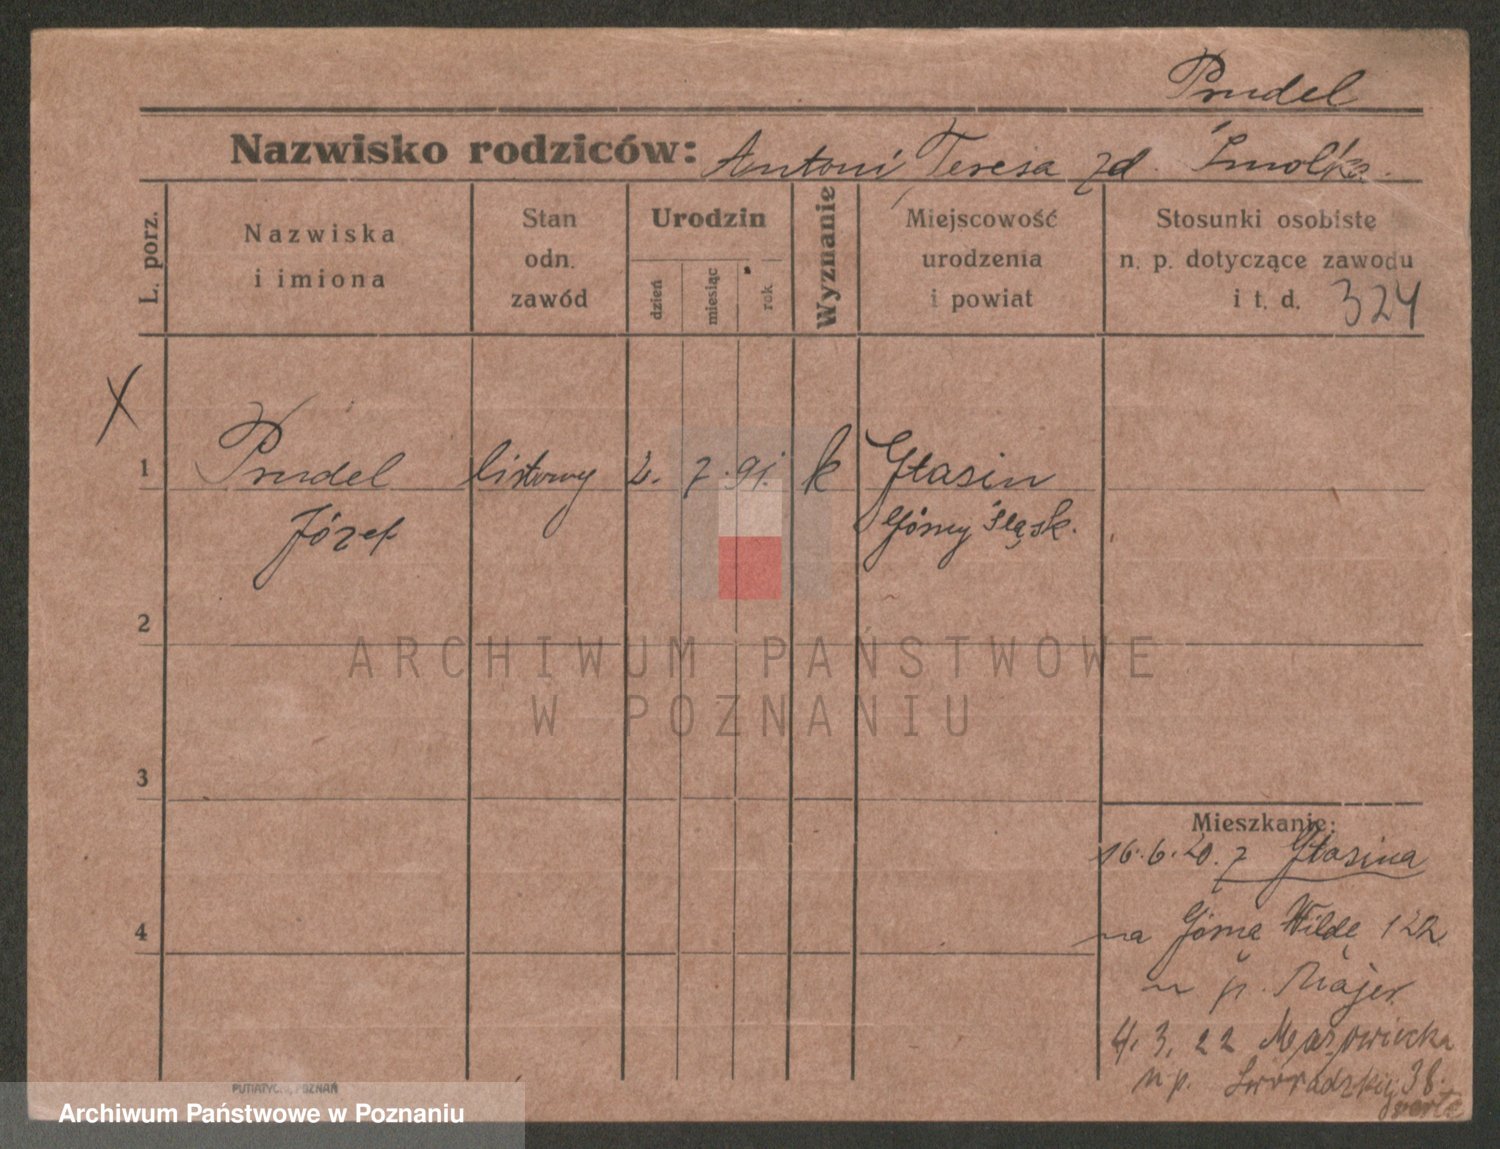 Prudel
Nazwisko rodziców: Antoni Teresa zd. Smolka.
L. porz.
Nazwiska
i imiona
Stan
odn.
zawód
Urodzin
dzień
miesiąc
rok.
Wyznanie
Miejscowość
urodzenia
i powiat
Stosunki osobiste
n. p. dotyczące zawodu
i t. d. 324
X
1 Prudel listowy 2. 7. 91. k Głasin
Józef Górny Śląsk.
2
ARCHIWUM PAŃSTWOWE
W POZNANIU
3
Mieszkanie:
16.6.20. z Głasina
4
na Górna Wildę 122
u p. Majer
4. 3. 22 Mazowiecka
u p. 38.
verte
PUTIATYCKI, POZNAŃ
Archiwum Państwowe w Poznaniu